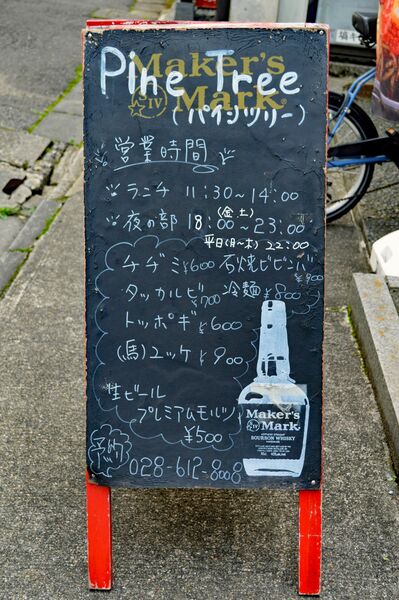 Maker's
Mark
S IV
Pine Tree
(パインツリー)
営業時間
ランチ 11:30~14:00
(金土)
夜の部 18:00~23:00
平日(月~木) 22:00
チヂミ¥600 石焼ビビンバ
¥900
タッカルビ¥700 冷麺¥800
トッポギ¥600
(馬)ユッケ¥900
生ビール
プレミアムモルツ
¥500
Maker's
Mark
BOURBON WHISKY
予約 028-612-8008